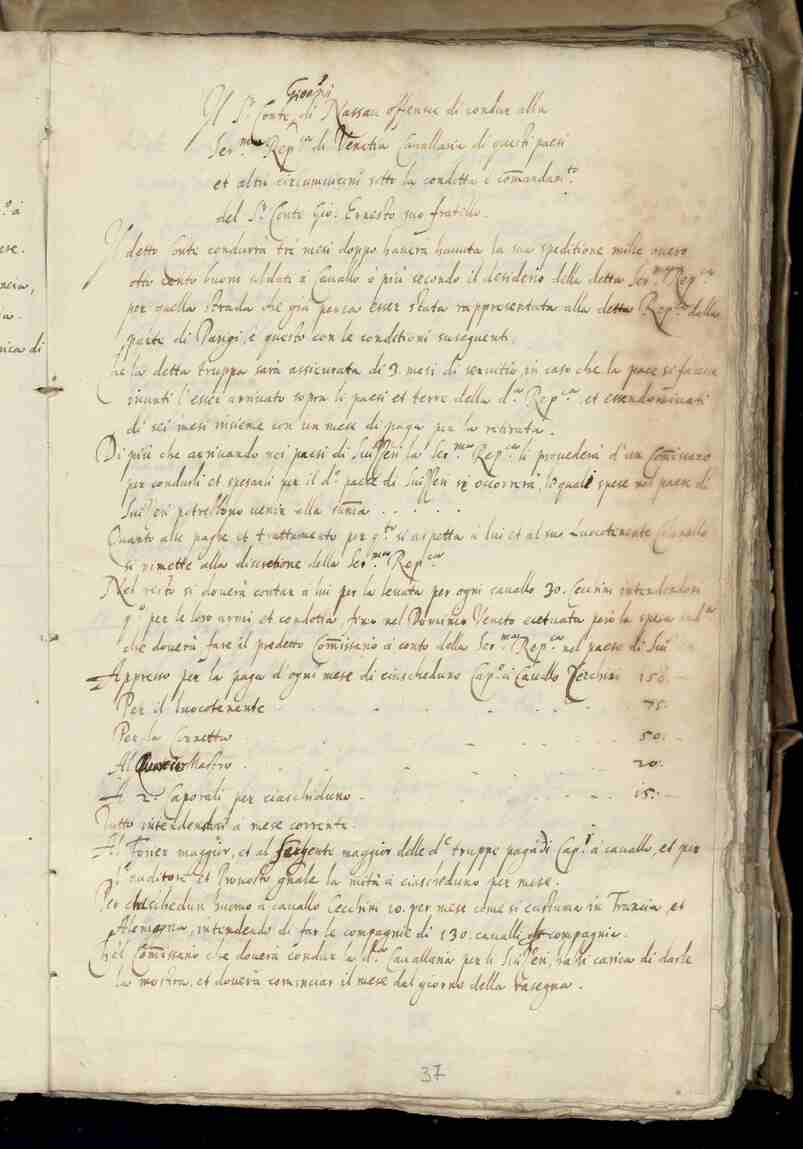 Gioanni
Il Sr. Conte di Nassau offerisce di condur alla
Ser.ma Rep.ca di Venetia Cavallaria di questi paesi
et altri circumvicini sotto la condotta e comandam.to
del Sr. Conte Gio: Ernesto suo fratello.
Il detto Conte condurrà tre mesi doppo haverà havuta la sua speditione mille overo
otto cento buoni soldati à Cavallo ò più secondo il desiderio della detta Ser.ma Rep.ca
per quella strada che già pensa esser stata rappresentata alla detta Rep.ca dalla
parte di Parigi, e questo con le conditioni susequenti.
Che la detta truppa sarà assicurata di 3. mesi di servitio, in caso che la pace si faccia
inanti l'esser arrivato sopra li paesi et terre della d.a Rep.ca, et essendo
di sei mesi insieme con un mese di paga per la retirata.
Di più che arrivando nei paesi di Suisseri la Ser.ma Rep.ca li provederà d'un Comissario
per condurli et spesarli per il d.o paese di Suisseri se occorrerà, le quali spese nel paese di
Suisseri potrebbono venir alla suma . . . . .
Quanto alle paghe et trattamento per q.to si aspetta à lui et al suo Luocotenente Colonello
si rimette alla discretione della Ser.ma Rep.ca
Nel resto si doverà contar à lui per la levata per ogni cavallo 30. Cecchini intendendosi
q.o per le loro armi et condotta, fino nel Dominio Veneto ecetuata però la spesa
che doverà fare il predetto Comissario à conto della Ser.ma Rep.ca nel paese di Sui
Appresso per la paga d'ogni mese di ciascheduno Cap.o à Cavallo Zecchini 150. -
Per il luocotenente . . . . 75. -
Per la Cornetta . . . . 50. -
Al Mastro . . . . 20. -
A 2. Caporali per ciascheduno . . . . 15. -
Tutto intendendosi à mese corrente.
Al Forier maggior, et al sergente maggior delle d.e truppe paga di Cap.o à cavallo, et per
l'auditore et Provosto g'nale la mità à ciascheduno per mese.
Per ciaschedun huomo à cavallo Cecchini 10. per mese come si costuma in Francia, et
Alemagna, intendendo di far le compagnie di 130. cavalli compagnia.
Ch'el Comissario che doverà condur la d.a Cavallaria per li Suisseri, habbi carica di darle
la mostra, et doverà cominciar il mese dal giorno della rasegna.
37